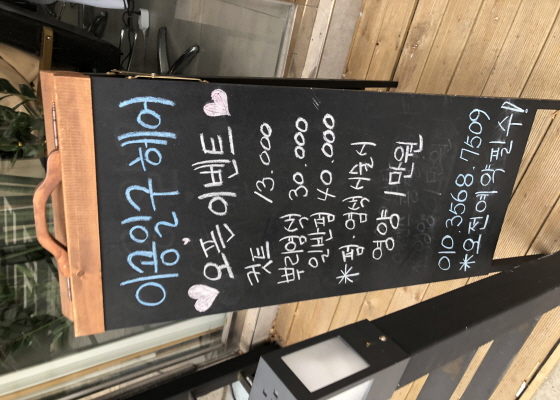 이공일구헤어
♡오픈이벤트♡
컷트 13.000
뿌리염색 30.000
일반펌 40.000
*펌·염색시술시
영양 1만원
010 3568 7509
*오전예약필수!